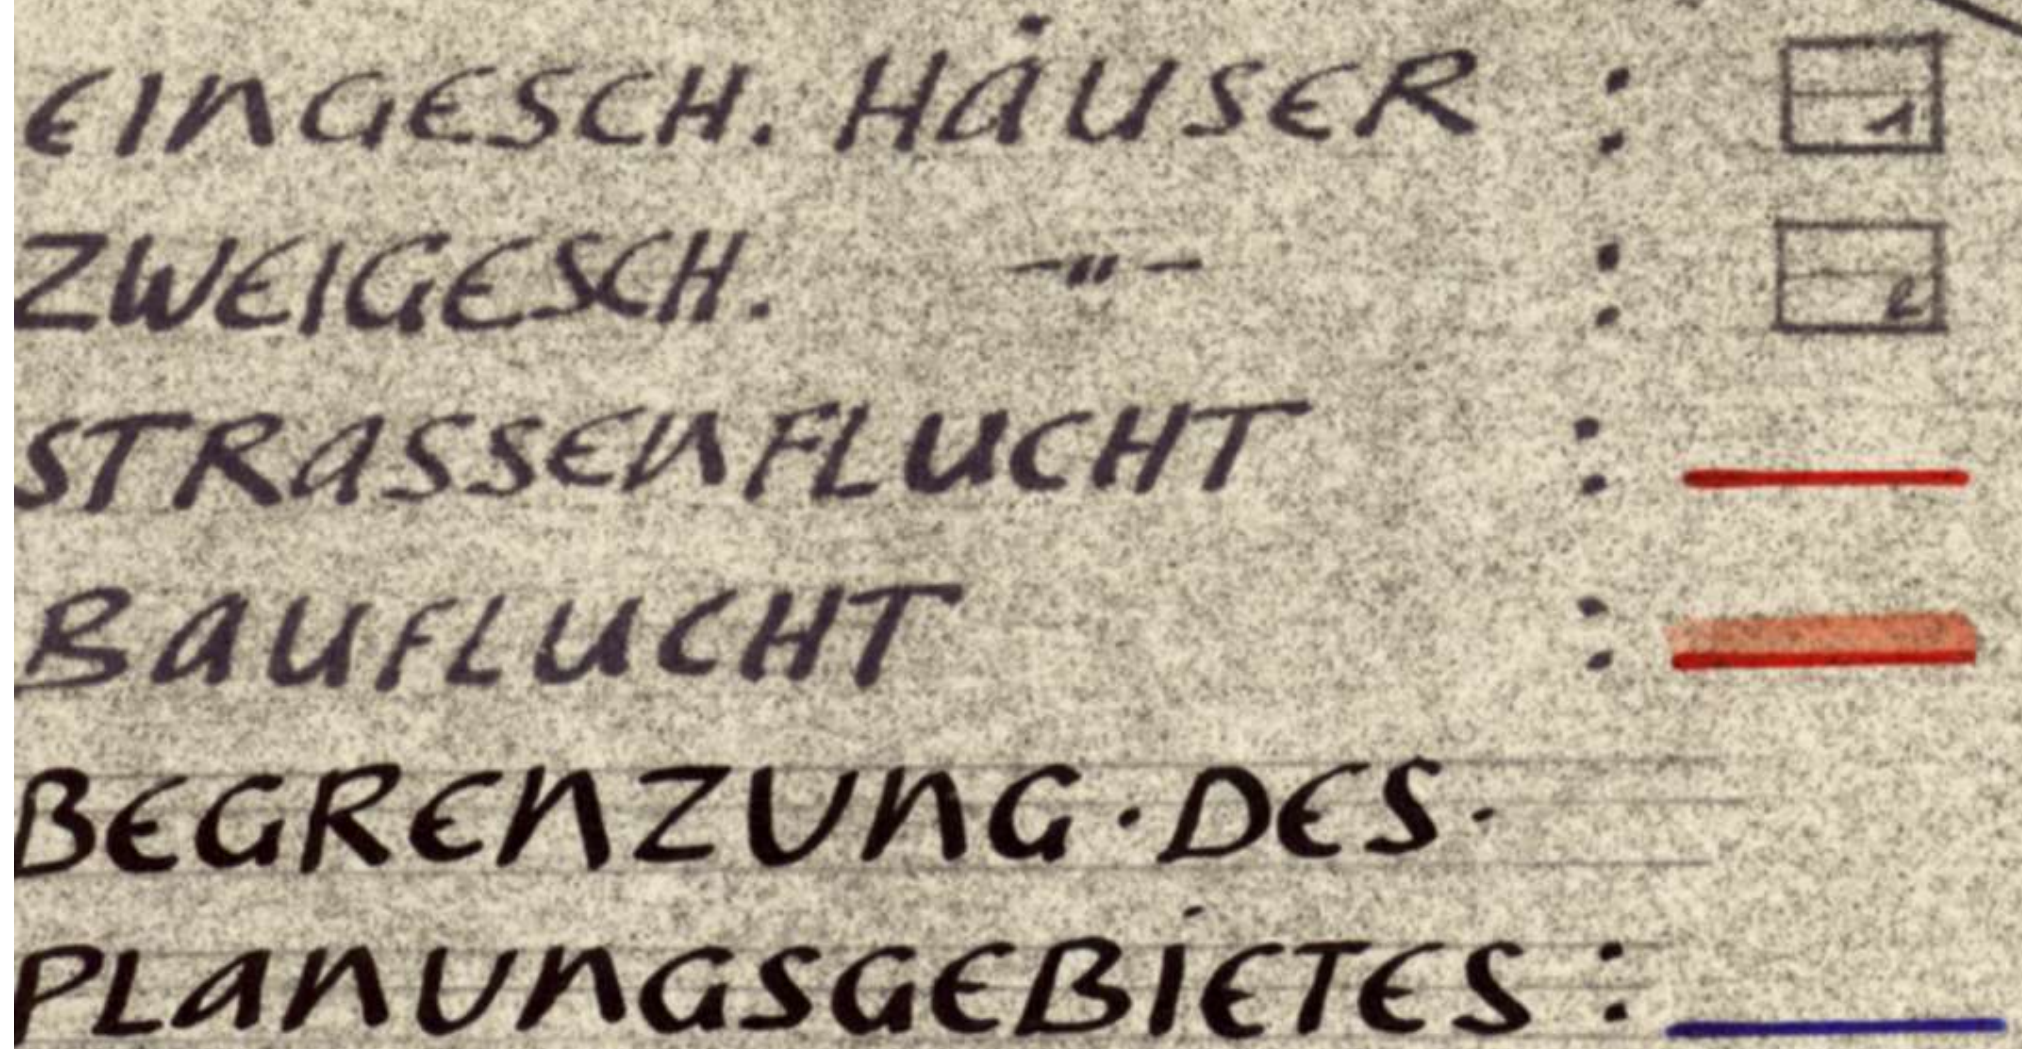 EINGESCH. HÄUSER : 1
ZWEIGESCH. -"- : 2
STRASSENFLUCHT :
BAUFLUCHT :
BEGRENZUNG · DES ·
PLANUNGSGEBIETES :